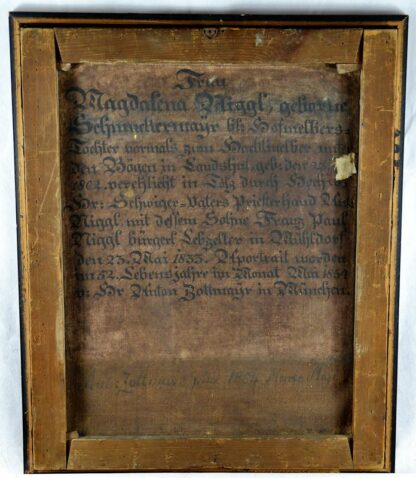 Frau
Magdalena Niggl, geborne
Schmuckermayr bgl. Hofmelbers-
Tochter vormals zum Hochlmelber unter
den Bögen in Landshut, geb: den 28
1802, verehlicht in Tölz durch Hochw:
Hr: Schwiger-Vaters Priesterhand
Niggl mit dessem Sohne Franz Paul
Niggl bürgerl. Lebzelter in Mühldorf
den 23. Mai 1833. Aportrait worden
im 52. Lebensjahre im Monat Mai 1854
v: Hr Anton Zollmayr in München.
pinx 1854